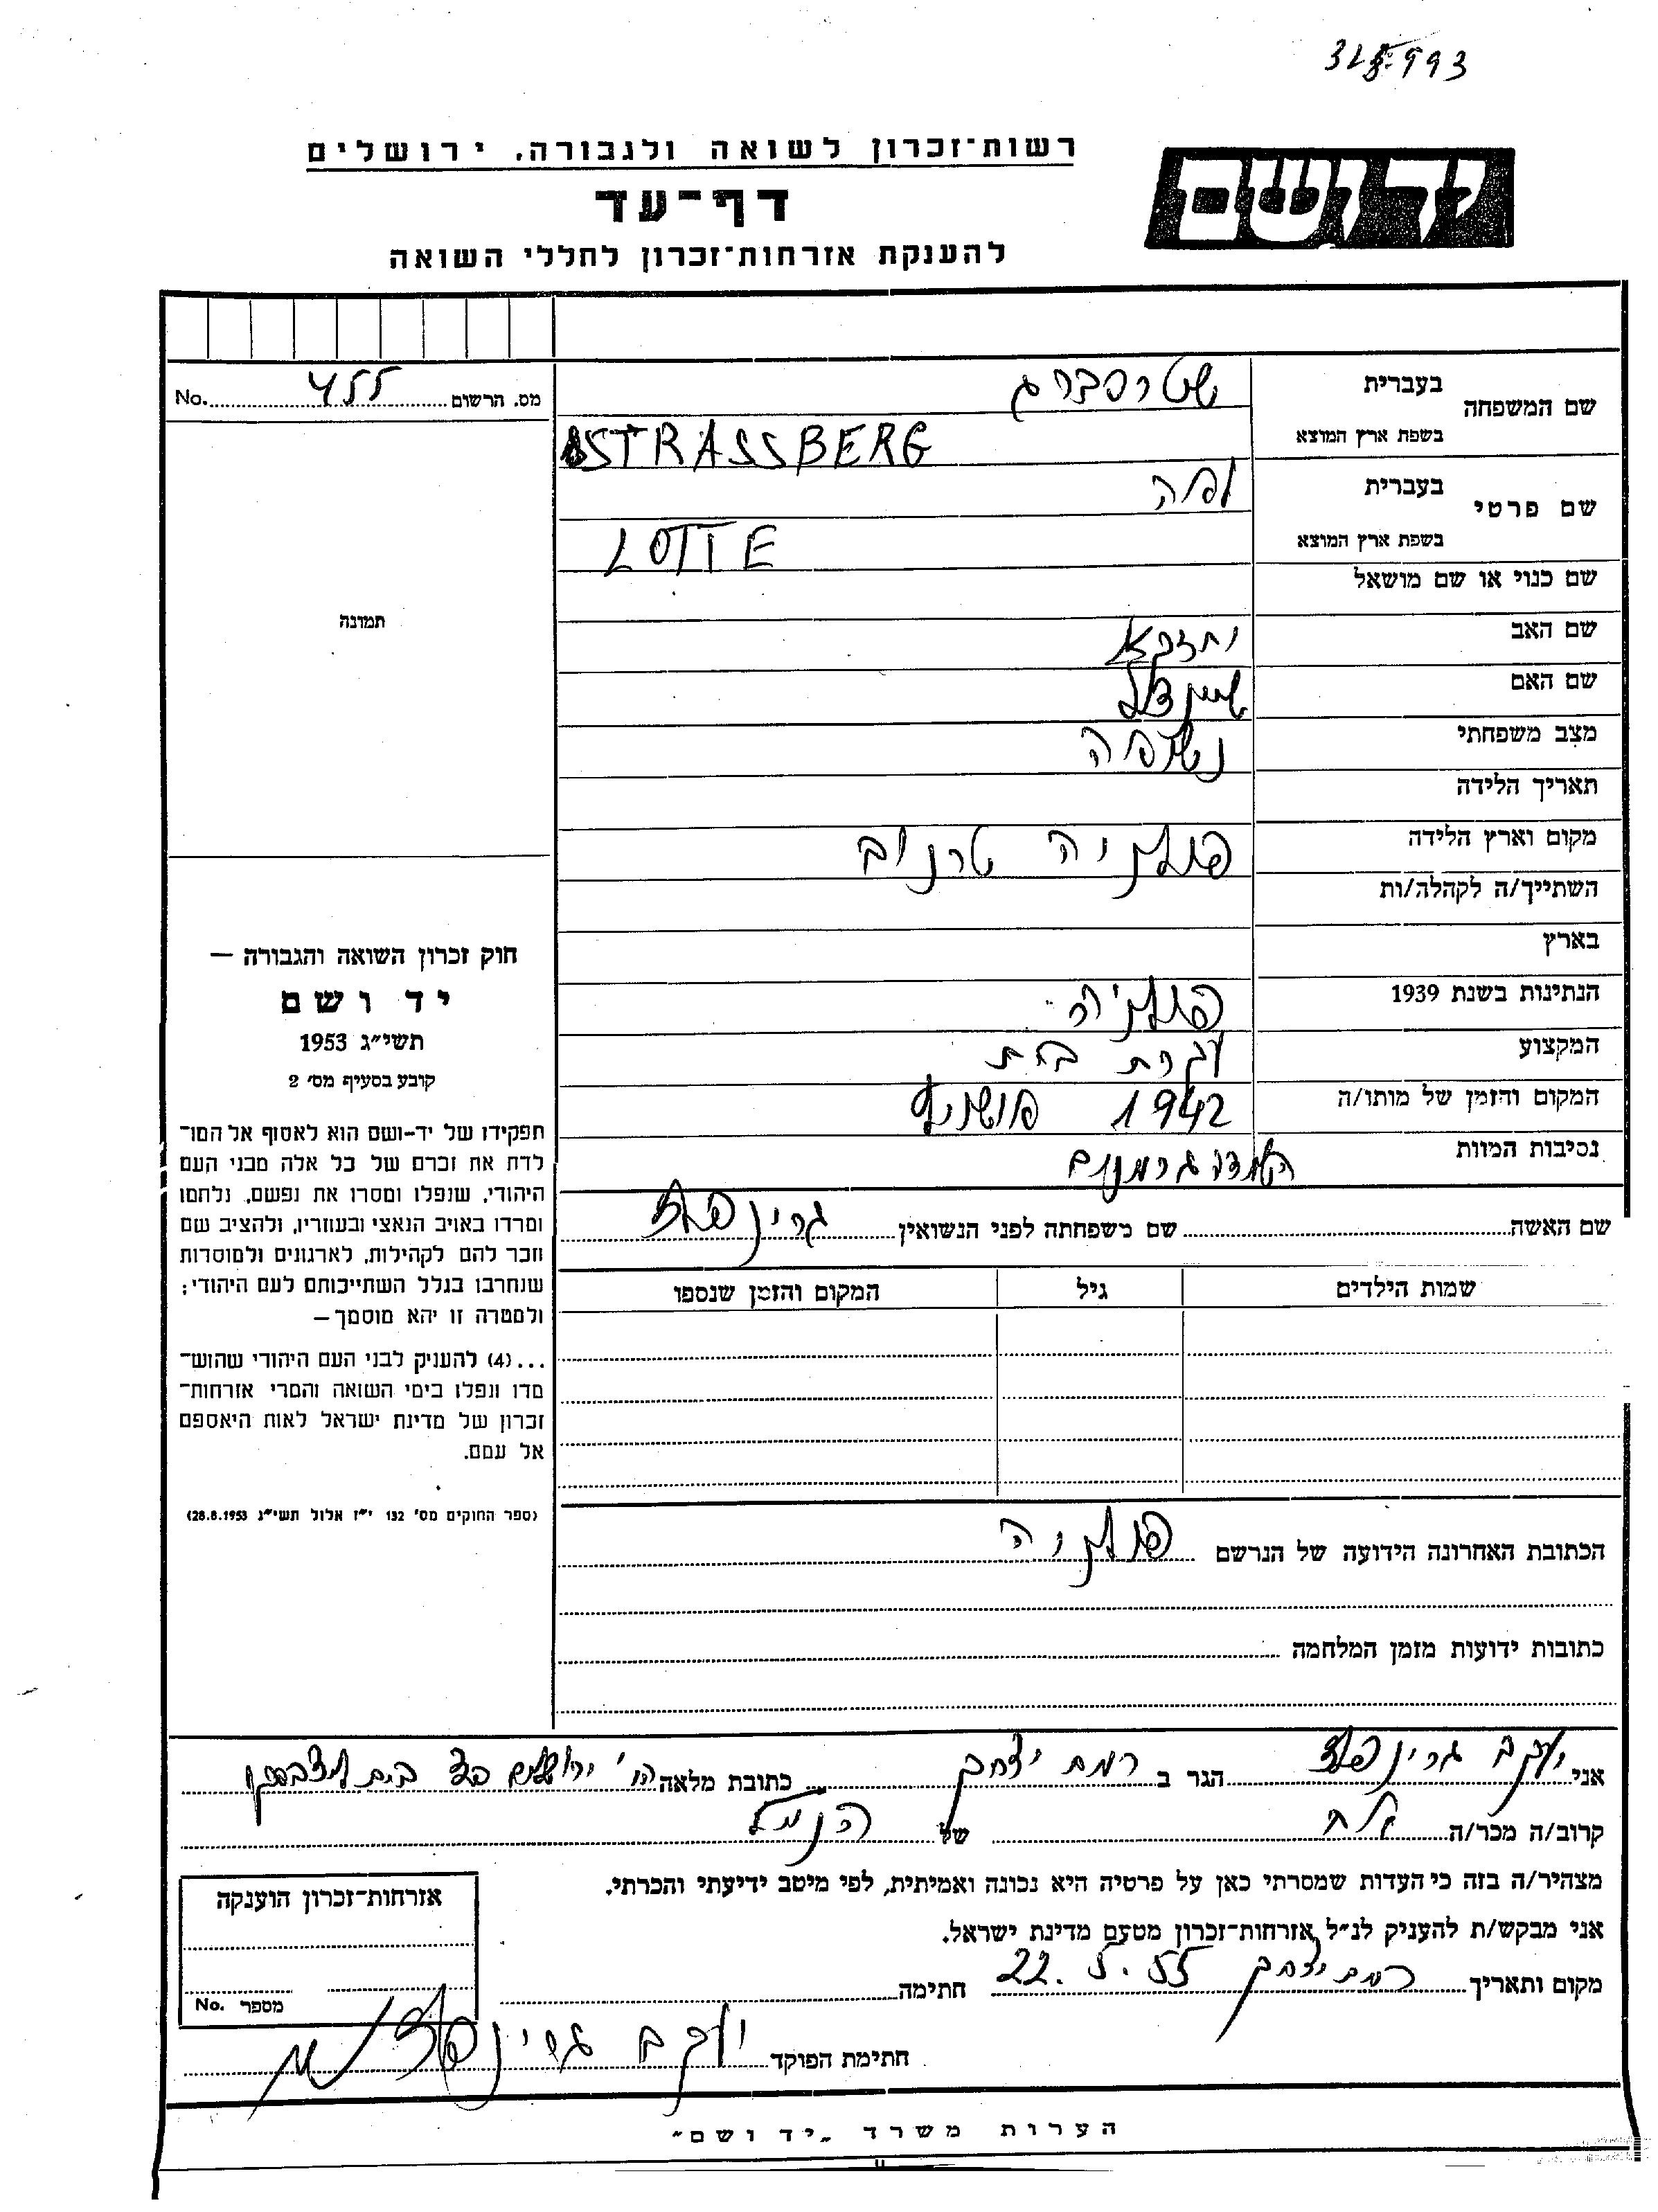 318993
רשות־זכרון לשואה ולגבורה, ירושלים
יד ושם
דף־עד
להענקת אזרחות־זכרון לחללי השואה
מס. הרשום 455 No.
שם המשפחה
בעברית שטרסברג
בשפת ארץ המוצא STRASSBERG
שם פרטי
בעברית לוטה
בשפת ארץ המוצא LOTTE
שם כנוי או שם מושאל
שם האב
שם האם שיינדל
מצב משפחתי נשואה
תאריך הלידה
מקום וארץ הלידה פולניה טרנוב
השתייך/ה לקהלה/ות
בארץ
הנתינות בשנת 1939 פולניה
המקצוע עקרת בית
המקום והזמן של מותו/ה 1942
נסיבות המוות
שם האשה שם משפחתה לפני הנשואין גרינפלד
שמות הילדים גיל המקום והזמן שנספו
הכתובת האחרונה הידועה של הנרשם פולניה
כתובות ידועות מזמן המלחמה
תמונה
חוק זכרון השואה והגבורה –
יד ושם
תשי״ג 1953
קובע בסעיף מס׳ 2
תפקידו של יד-ושם הוא לאסוף אל המו־
לדת את זכרם של כל אלה מבני העם
היהודי, שנפלו ומסרו את נפשם, נלחמו
ומרדו באויב הנאצי ובעוזריו, ולהציב שם
וזכר להם לקהילות, לארגונים ולמוסדות
שנחרבו בגלל השתייכותם לעם היהודי;
ולמטרה זו יהא מוסמך –
...(4) להענקיק לבני העם היהודי שהוש־
מדו ונפלו בימי השואה והמרי אזרחות־
זכרון של מדינת ישראל לאות היאספם
אל עמם.
(ספר החוקים מס׳ 132 י״ז אלול תשי״ג 28.8.1953)
אני יעקב גרינפלד הגר ב רמת יצחק כתובת מלאה
קרוב/ה מכר/ה אח של הנ״ל
מצהיר/ה בזה כי העדות שמסרתי כאן על פרטיה היא נכונה ואמיתית, לפי מיטב ידיעתי והכרתי.
אני מבקש/ת להעניק לנ״ל אזרחות־זכרון מטעם מדינת ישראל.
מקום ותאריך רמת יצחק 22.5.55 חתימה
חתימת הפוקד יעקב גרינפלד
אזרחות־זכרון הוענקה
מספר No.
הערות משרד „יד ושם"